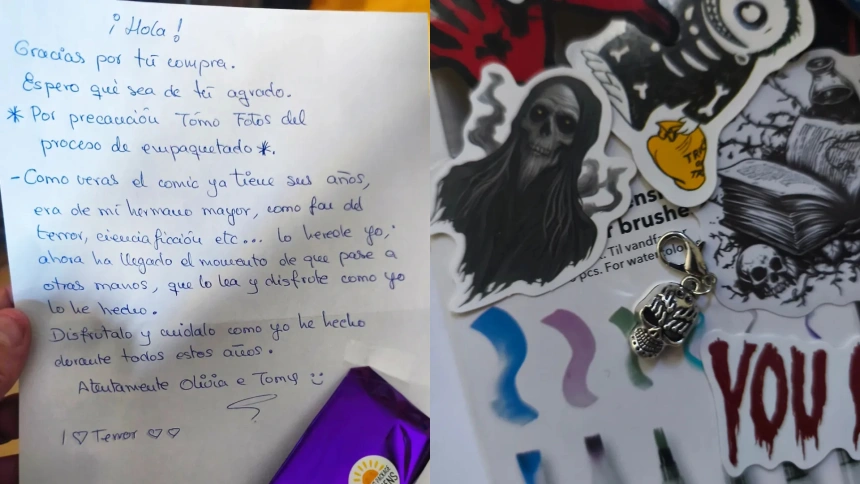 ¡Hola!
Gracias por tú compra.
Espero qué sea de tú agrado.
* Por precaución Tomo Fotos del
proceso de empaquetado *.
- Como veras el comic ya tiene sus años,
era de mi hermano mayor, como fan del
terror, ciencia ficción etc... lo herede yo,
ahora ha llegado el momento de que pase a
otras manos, que lo lea y disfrute como yo
lo he hecho.
Disfrutalo y cuidalo como yo he hecho
durante todos estos años.
Atentamente Olivia e Tomy
I ♡ Terror ♡♡
TRICK
brushe
Til vandf
pcs. For watercolo
YOU